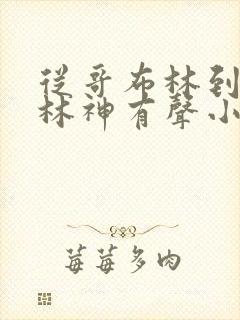 從哥布林到
林神有聲小
莓莓多肉